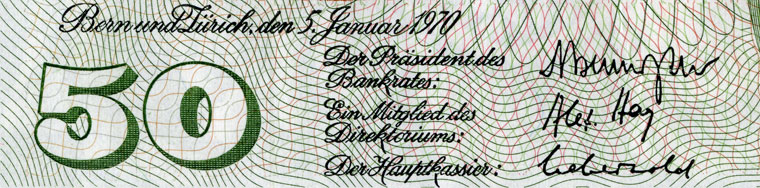 Bern und Zürich, den 5. Januar 1970
50
Der Präsident des
Bankrates:
Ein Mitglied des
Direktoriums:
Alex. Hay
Der Hauptkassier: